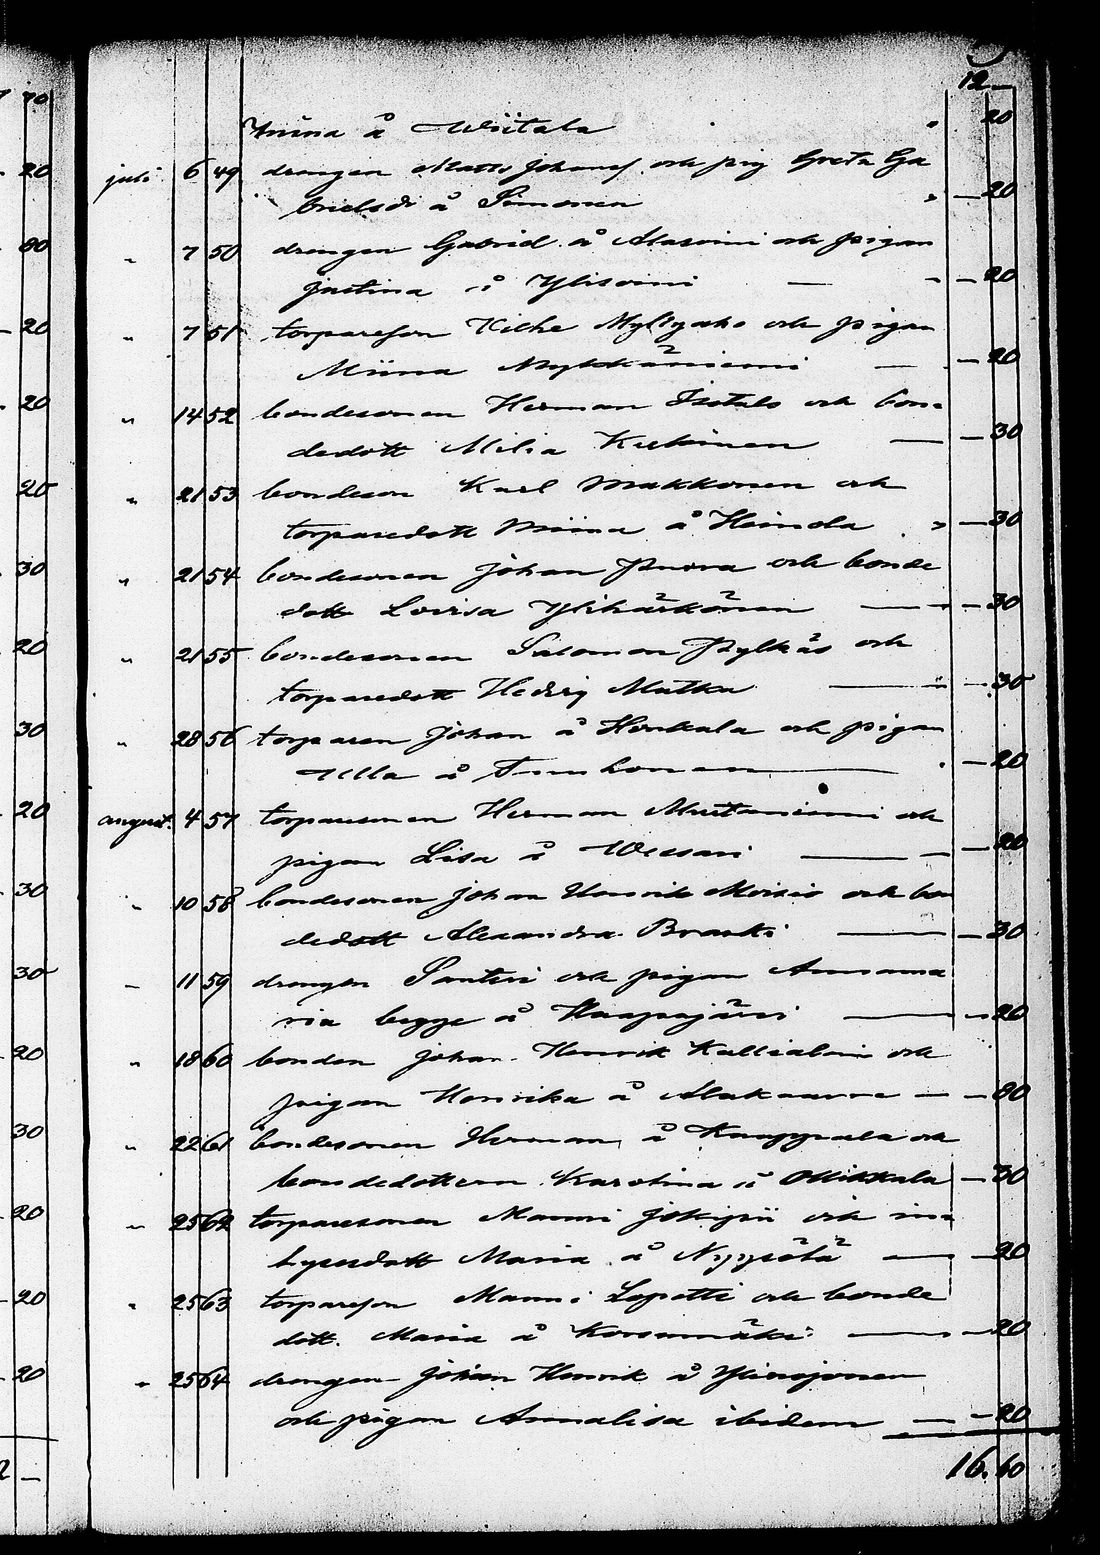 12 —
Miina å Wiitala " 20
juli 6 49 drengen Matts Johans. och pig Greta Ga
brielsdr å Simonen " — 20
" 7 50 drengen Gabriel å Alasoini och pigan
Justina å Ylisoini — " — 20
" 7 51 torpareson Kalle Myllyaho och pigan
Miina Mykkäniemi — — 20
" 14 52 bondesonen Herman Isotalo och bon=
dedott Milia Keskinen — — 30
" 21 53 bondeson Karl Makkonen och
torparedott Miina å Heinola " — 30
" 21 54 bondesonen Johan Panova och bonde
dott Lovisa Ylihärkönen — — 30
" 21 55 bondesonen Salomon Pylkäs och
torparedott Hedvig Matka — " — 30
" 28 56 torparen Johan å Honkala och pigan
Ulla å Turuhonen — " — 20
august. 4 57 torparesonen Herman Mustaniemi och
pigan Lisa å Wessari — — 20
" 10 58 bondesonen Johan Henrik Moisio och bon
dedott Alexandra Braski — — 30
" 11 59 drengen Santeri och pigan Annama
ria begge å Haapajärvi — — 20
" 18 60 bonden Johan Henrik Kallialmi och
pigan Henrika å Alakaarre — — 80
" 22 61 bondesonen Herman å Kauppala och
bondedottern Karolina å Ollikkala — 30
" 25 62 torparesonen Manni Jokipii och in=
hysesdott Maria å Nyysölä — — 20
" 25 63 torpareson Manni Lopotti och bonde
dott. Maria å Korvenmäki — — 20
" 25 64 drengen Johan Henrik å Ylinojonen
och pigan Annalisa ibidem — — 20
16.60